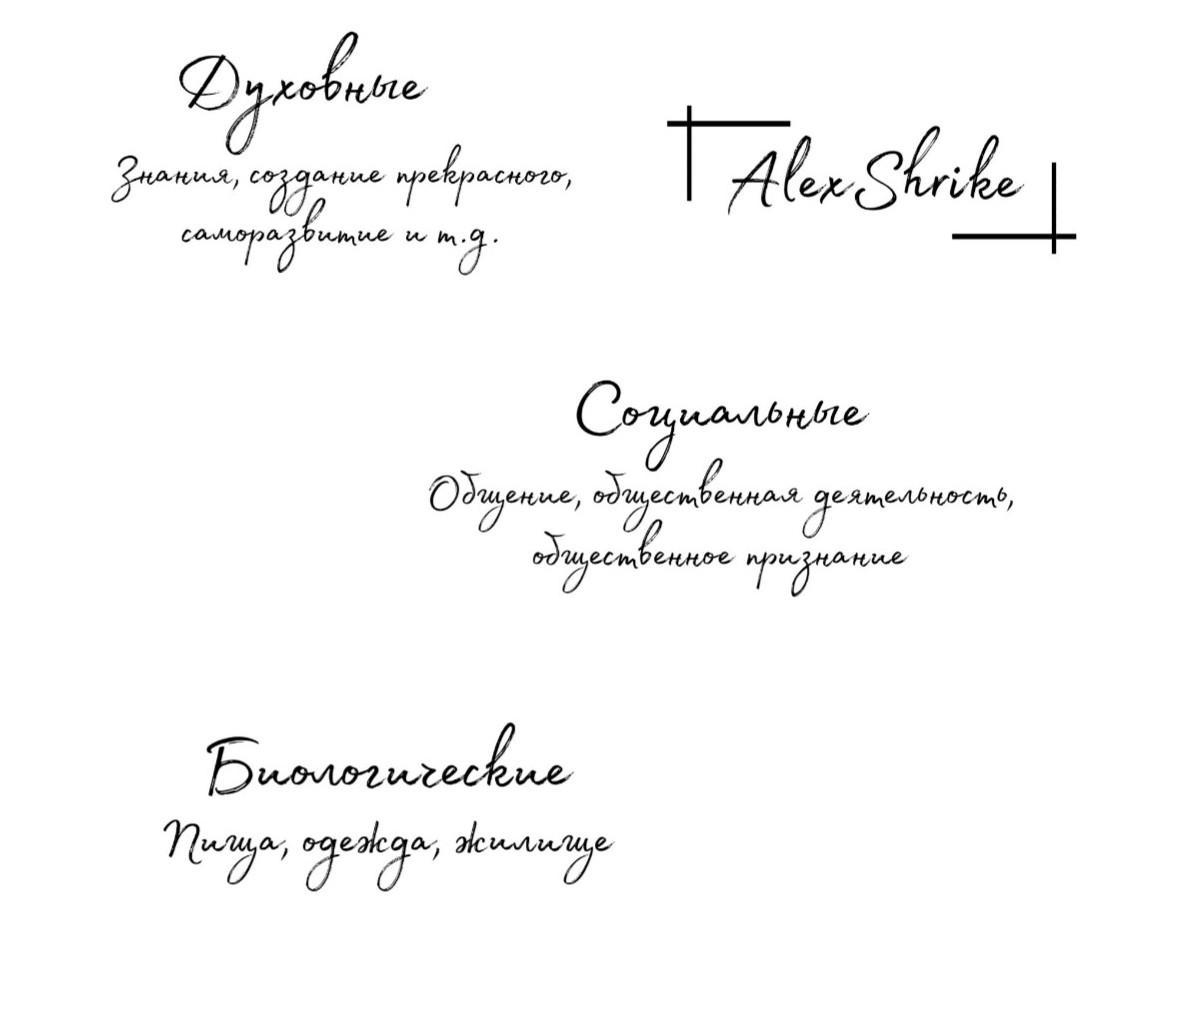 Духовные
Знания, создание прекрасного,
саморазвитие и т.д.
Alex Shrike
Социальные
Общение, общественная деятельность,
общественное признание
Биологические
Пища, одежда, жилище